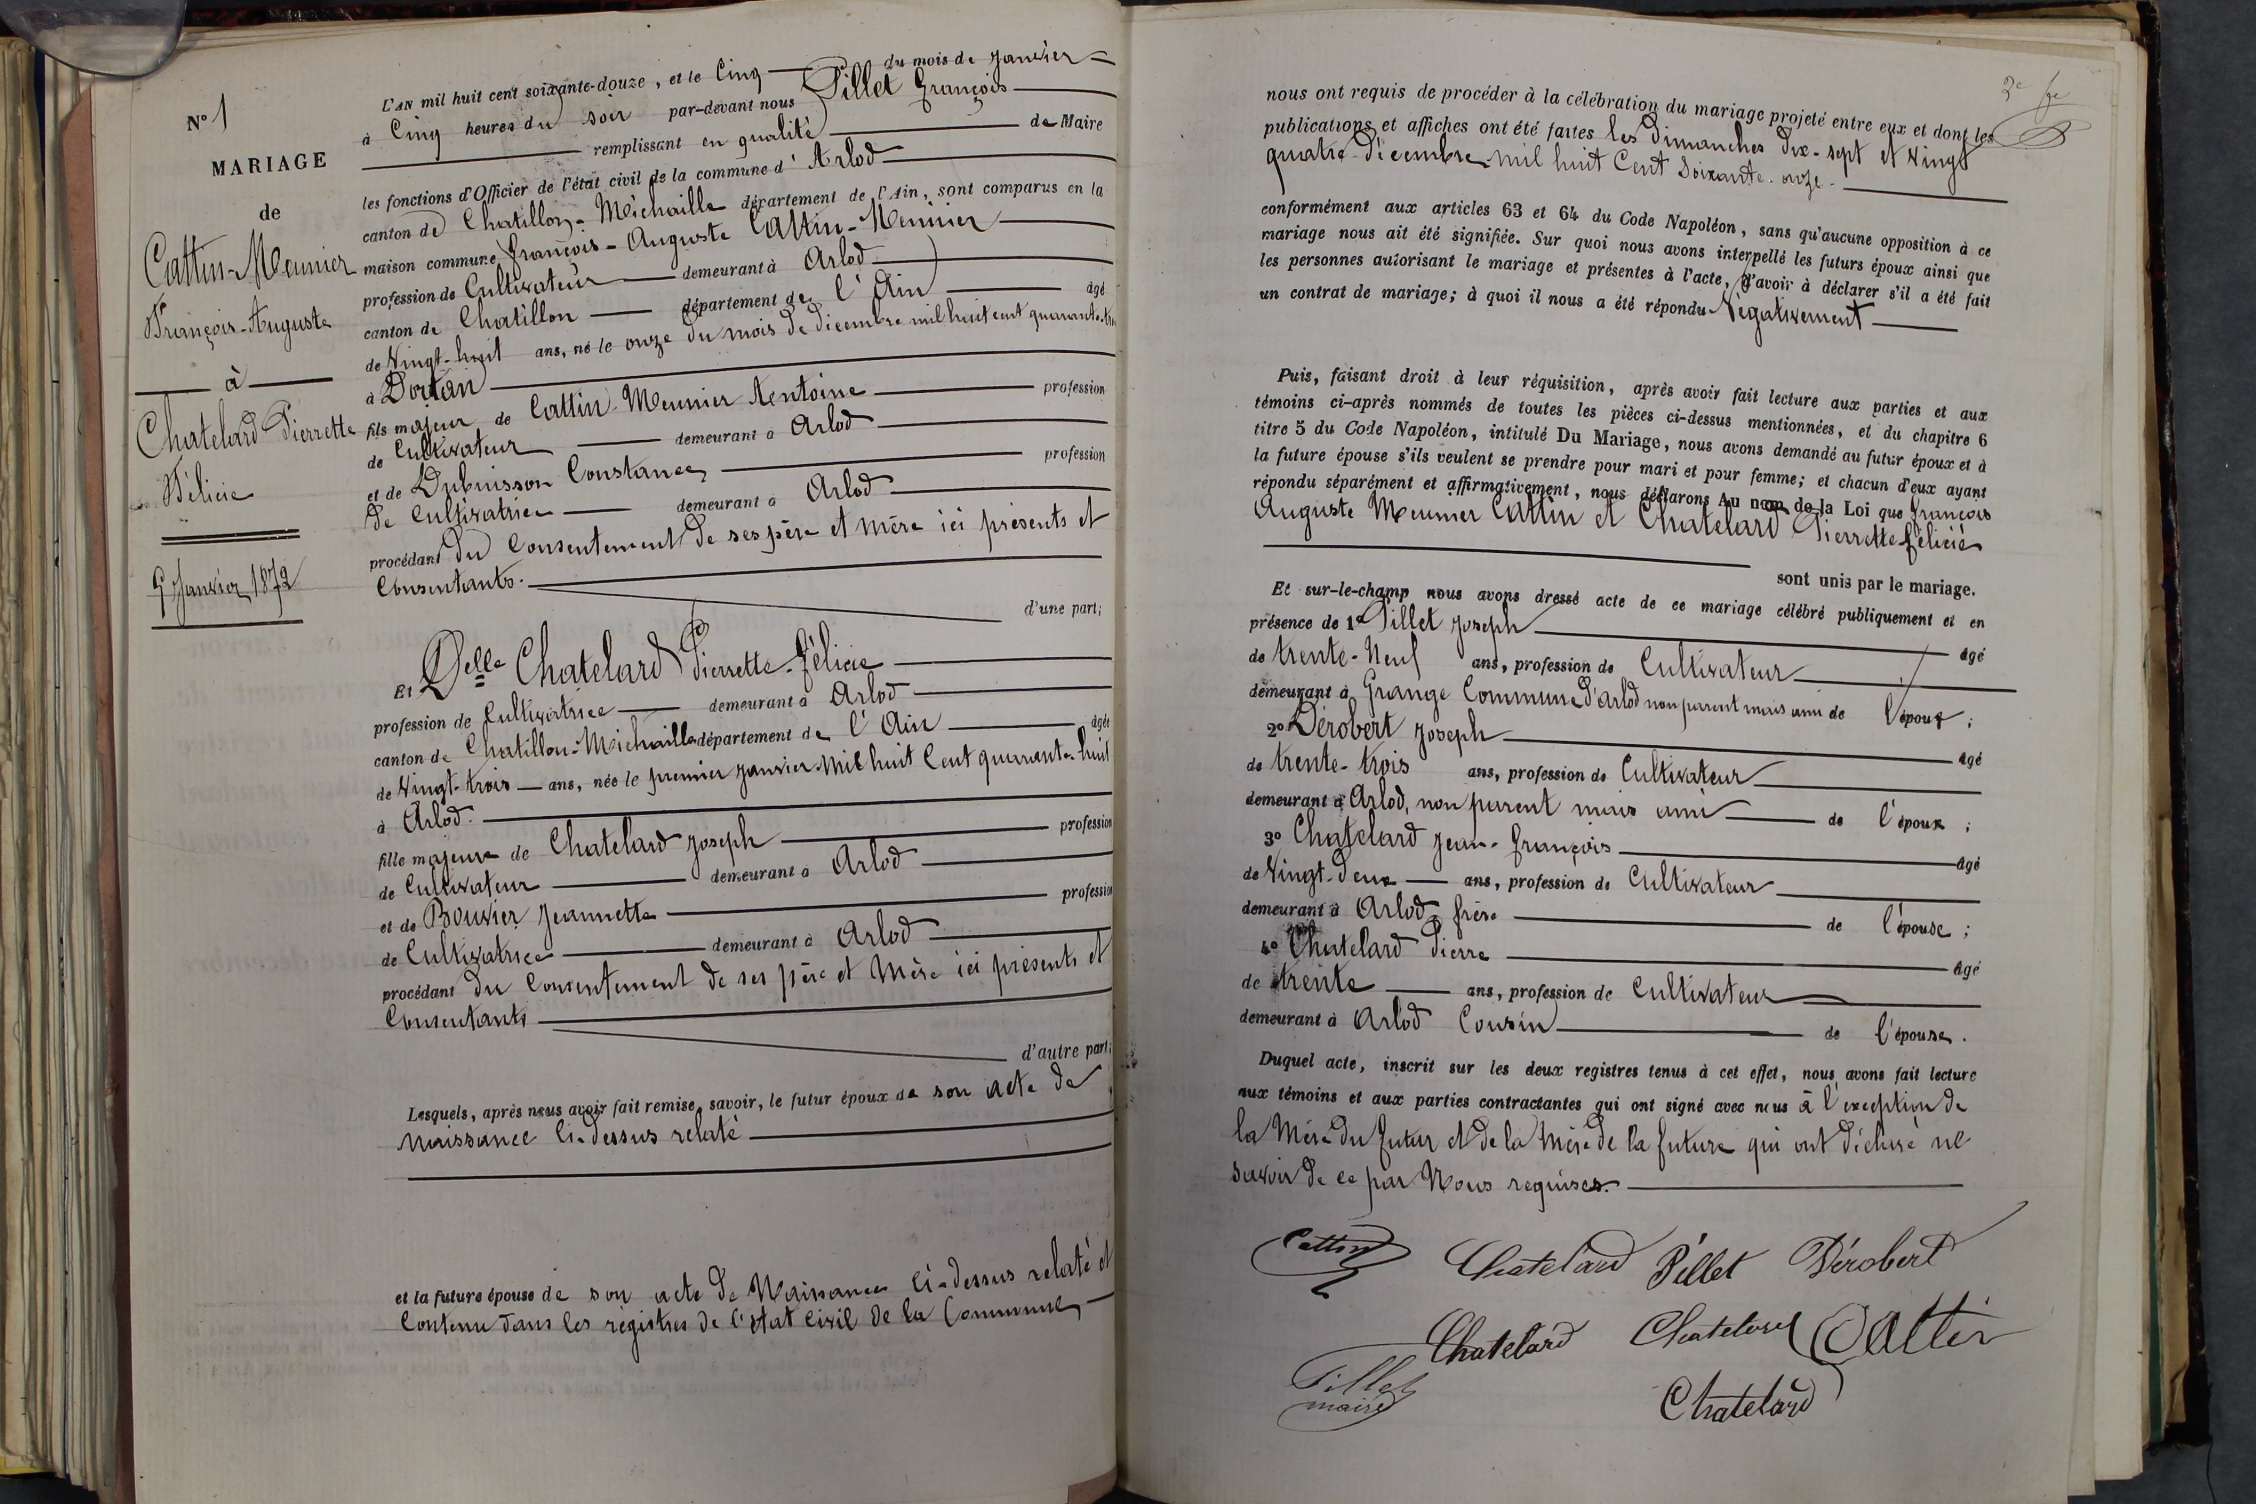 N° 1
MARIAGE
de
Cattin-Meunier
François-Auguste
à
Chatelard Pierrette
Félicie
5 Janvier 1872
L'AN mil huit cent soixante-douze, et le Cinq du mois de Janvier
à Cinq heures du soir par-devant nous Pillet François
remplissant en qualité de Maire
les fonctions d'Officier de l'état civil de la commune d'Arlod
canton de Chatillon-Michaille département de l'Ain, sont comparus en la
maison commune François-Auguste Cattin-Meunier
profession de Cultivateur demeurant à Arlod
canton de Chatillon département de l'Ain âgé
de Vingt-huit ans, né le onze du mois de décembre mil huit cent quarante-trois
à Dortan
fils majeur de Cattin-Meunier Antoine profession
de Cultivateur demeurant à Arlod
et de Dubuisson Constance profession
de Cultivatrice demeurant à Arlod
procédant du Consentement de ses père et mère ici présents et
Consentants.
d'une part;
Et Delle Chatelard Pierrette-Félicie
profession de Cultivatrice demeurant à Arlod
canton de Chatillon-Michaille département de l'Ain âgée
de Vingt-trois ans, née le premier Janvier Mil huit Cent quarante-huit
à Arlod.
fille majeure de Chatelard Joseph profession
de Cultivateur demeurant à Arlod
et de Bouvier Jeannette profession
de Cultivatrice demeurant à Arlod
procédant du Consentement de ses père et Mère ici présents et
Consentants
d'autre part;
Lesquels, après nous avoir fait remise, savoir, le futur époux de son acte de
naissance Ci-dessus relaté
et la future épouse de son acte de Naissance Ci-dessus relaté et
Contenu dans les régistres de l'état Civil de la Commune,
nous ont requis de procéder à la célébration du mariage projeté entre eux et dont les
publications et affiches ont été faites les Dimanches dix-sept et Vingt
quatre Décembre mil huit Cent Soixante-onze
conformément aux articles 63 et 64 du Code Napoléon, sans qu'aucune opposition à ce
mariage nous ait été signifiée. Sur quoi nous avons interpellé les futurs époux ainsi que
les personnes autorisant le mariage et présentes à l'acte, d'avoir à déclarer s'il a été fait
un contrat de mariage; à quoi il nous a été répondu Négativement
Puis, faisant droit à leur réquisition, après avoir fait lecture aux parties et aux
témoins ci-après nommés de toutes les pièces ci-dessus mentionnées, et du chapitre 6
titre 5 du Code Napoléon, intitulé Du Mariage, nous avons demandé au futur époux et à
la future épouse s'ils veulent se prendre pour mari et pour femme; et chacun d'eux ayant
répondu séparément et affirmativement, nous déclarons Au nom de la Loi que François
Auguste Meunier Cattin et Chatelard Pierrette Félicie
sont unis par le mariage.
Et sur-le-champ nous avons dressé acte de ce mariage célébré publiquement et en
présence de 1° Pillet Joseph âgé
de trente-Neuf ans, profession de Cultivateur
demeurant à Grange Commune d'Arlod non parent mais ami de l'époux;
2° Dérobert Joseph âgé
de trente-trois ans, profession de Cultivateur
demeurant à Arlod, non parent mais ami de l'époux;
3° Chatelard Jean-François âgé
de Vingt-deux ans, profession de Cultivateur
demeurant à Arlod, frère de l'épouse;
4° Chatelard Pierre âgé
de trente ans, profession de Cultivateur
demeurant à Arlod Cousin de l'épouse.
Duquel acte, inscrit sur les deux registres tenus à cet effet, nous avons fait lecture
aux témoins et aux parties contractantes qui ont signé avec nous à l'exception de
la Mère du futur et de la Mère de la future qui ont déclaré ne
savoir de ce par Nous requises.
Cattin Chatelard Pillet Dérobert
Chatelard Chatelard Cattin
Pillet
maire
Chatelard